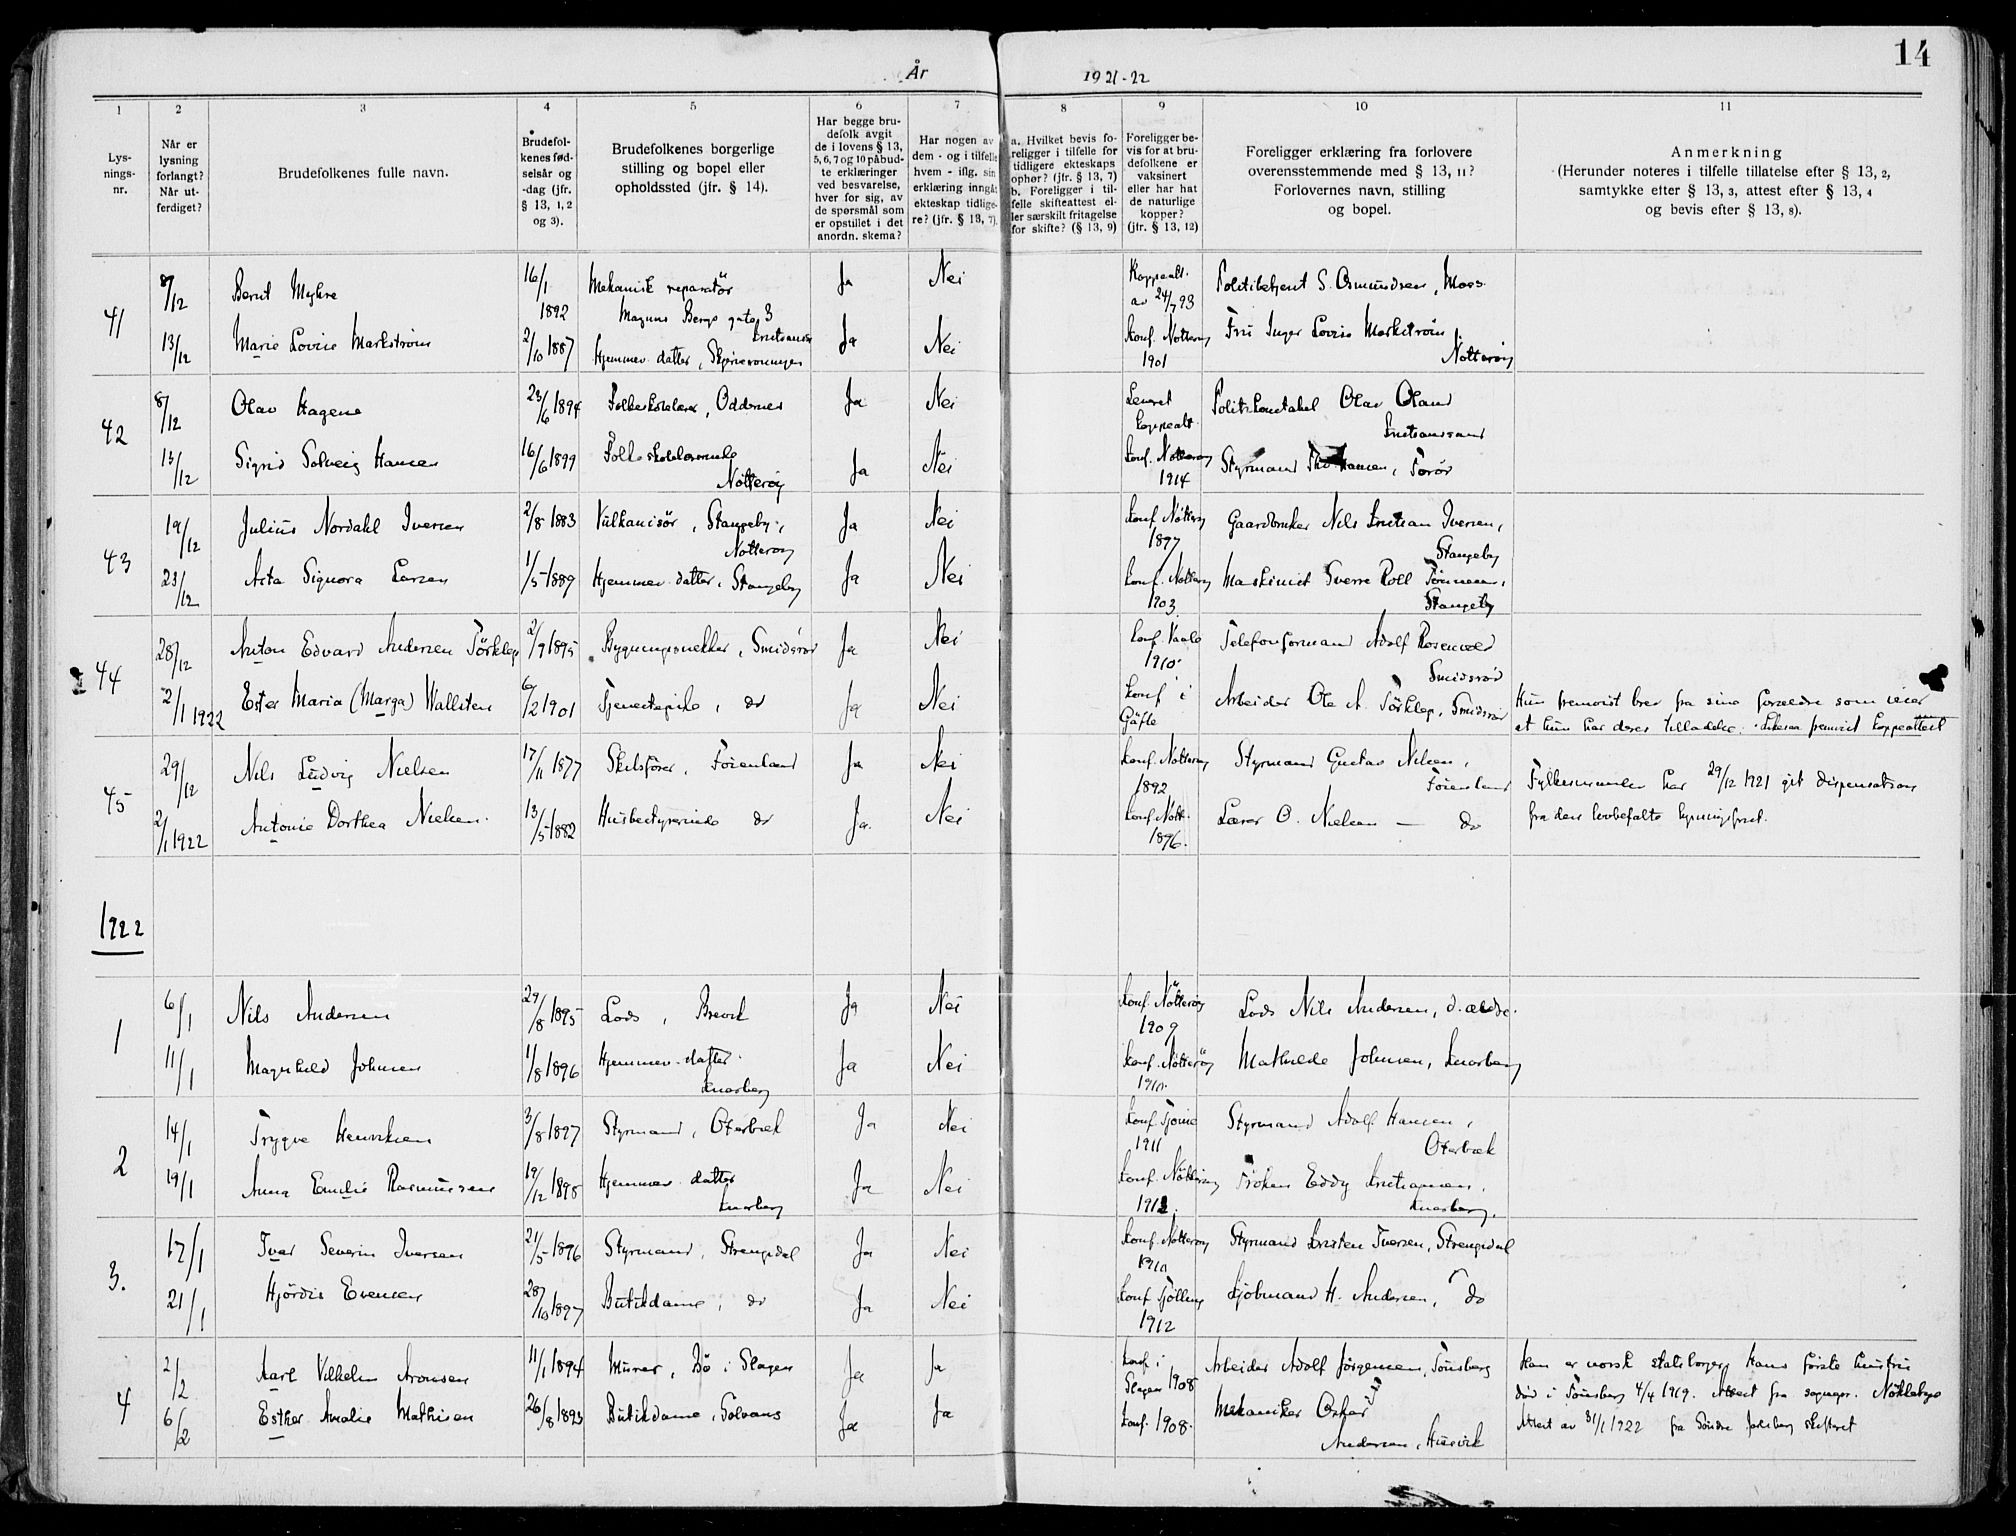 14
År 1921-22
1 2 3 4 5 6 7 8 9 10 11
Lysningsnr.
Når er lysning forlangt? Når utferdiget?
Brudefolkenes fulle navn.
Brudefolkenes fødselsår og -dag (jfr. § 13, 1, 2 og 3).
Brudefolkenes borgerlige stilling og bopel eller opholdssted (jfr. § 14).
Har begge brudefolk avgit de i lovens § 13, 5, 6, 7 og 10 påbudte erklæringer ved besvarelse, hver for sig, av de spørsmål som er opstillet i det anordn. skema?
Har nogen av dem - og i tilfelle hvem - iflg. sin erklæring inngåt ekteskap tidligere? (jfr. § 13, 7).
a. Hvilket bevis foreligger i tilfelle for tidligere ekteskaps ophør? (jfr. § 13, 7) b. Foreligger i tilfelle skifteattest eller særskilt fritagelse for skifte? (§ 13, 9)
Foreligger bevis for at brudefolkene er vaksinert eller har hat de naturlige kopper? (jfr. § 13, 12)
Foreligger erklæring fra forlovere overensstemmende med § 13, 11? Forlovernes navn, stilling og bopel.
Anmerkning (Herunder noteres i tilfelle tillatelse efter § 13, 2, samtykke efter § 13, 3, attest efter § 13, 4 og bevis efter § 13, 8).
41 8/12 Bernt Myhre 16/1 1892 Mekanisk reparatör Magnus Bergs gate 3 Kristiania Ja Nei Koppeatt. av 24/7 93 Politibetjent S. Osmundsen, Moss
13/12 Marie Lovise Markström 2/10 1887 Hjemmev. datter, Ja Nei Konf. Nötteröy 1901 Fru Inger Lovise Markström Nötteröy
42 8/12 Olav Hagene 23/6 1894 Folkeskolelærer, Oddernes Ja Nei Leveret koppeatt. Politikonstabel Olav Oland Kristiansand
13/12 Sigrid Solveig Hansen 16/6 1899 Folkeskolelærerinde Nötteröy Ja Nei Konf. Nötteröy 1914 Styrmand Hansen, Torör
43 19/12 Julius Nordahl Iversen 2/8 1883 Vulkanisör, Stangeby, Nötteröy Ja Nei Konf. Nötteröy 1897 Gaardbruker Nils Kristian Iversen, Stangeby
23/12 Asta Signora Larsen 1/5 1889 Hjemmev. datter, Stangeby Ja Nei Konf. Nötteröy 1903 Maskinist Sverre Roll Tönnesen, Stangeby
44 28/12 Anton Edvard Andersen Törklep 2/9 1895 Bygningssnekker, Smidsrör Ja Nei Konf. Vaale 1910 Telefonformand Adolf Rosenvold Smidsröd
2/1 1922 Ester Maria (Marga) Wallsten 6/2 1901 Tjenestepike, do Ja Nei Konf i Gäfle Arbeider Ole A. Törklep, Smidsrör Hun fremvist brev fra sine forældre som viser
at hun har deres tilladelse. Likesaa fremvist koppeattest
45 29/12 Nils Ludvig Nielsen 17/11 1877 Skibsförer, Föienland Ja Nei Konf. Nötteröy 1892 Styrmand Gustav Nilsen, Föienland Fylkesmannen har 29/12 1921 git dispensation
2/1 1922 Antonie Dorthea Nielsen 13/5 1882 Husbestyrerinde do Ja. Nei Konf. Nött. 1896. Lærer O. Nielsen — do fra den lovbefalte lysningsfrist.
1922
1 6/1 Nils Andersen 29/8 1895 Lods, Brevik Ja Nei Konf. Nötteröy 1909 Lods Nils Andersen, d. ældre.
11/1 Magnhild Johnsen 11/8 1896 Hjemmev. datter Knarberg Ja Nei Konf. Nötteröy 1910. Mathilde Johnsen, Knarberg
2 14/1 Trygve Henriksen 3/8 1897 Styrmand, Oterbæk Ja Nei Konf. Tjöme 1911 Styrmand Adolf Hansen, Oterbæk
19/1 Anna Emilie Rasmussen 19/12 1898 Hjemmev. datter Knarberg Ja Nei Konf. Nötteröy 1912. Fröken Eddy Kristiansen, Knarberg.
3. 17/1 Ivar Severin Iversen 21/5 1896 Styrmand, Strengsdal Ja Nei Konf. Nötteröy 1910 Styrmand Kristen Iversen, Strengsdal
21/1 Hjördis Evensen 28/10 1897 Butikdame, do Ja Nei Konf Tjölling 1912 Kjöbmand H. Andersen, do
4 2/2 Karl Vilhelm Aronsen 11/1 1894 Murer, Bö i Slagen Ja Ja Konf i Slagen 1908 Arbeider Adolf Jörgensen, Tönsberg Han er norsk statsborger, Hans förste hustru
död i Tönsberg 4/4 1919. Attest fra sogneprr. Nöklebye
6/2 Esther Amalie Mathisen 26/8 1893 Butikdame, Solvang Ja Ja Konf. 1908. Mekaniker Oskar Andersen, Husvik Attest av 31/1 1922 fra Söndre Jarlsberg skifteret